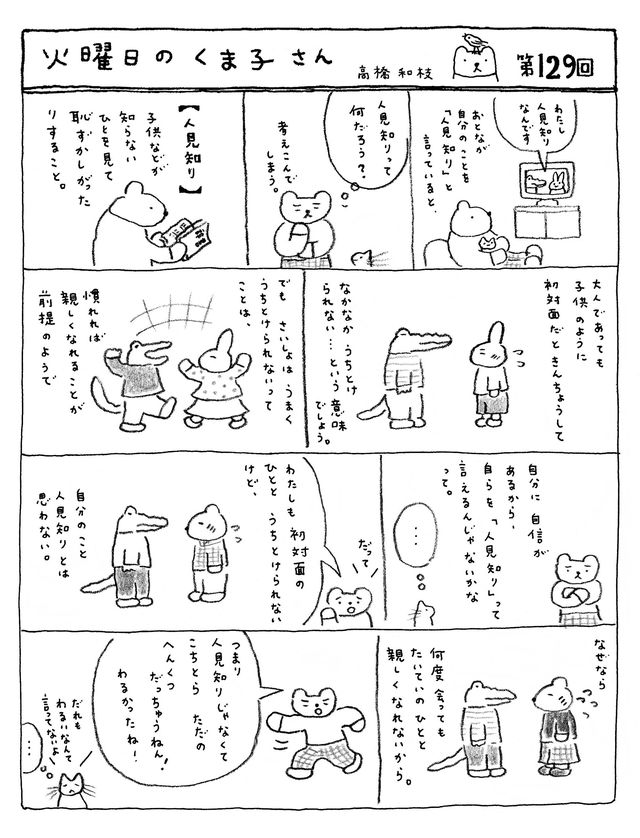 火曜日のくま子さん
高橋和枝
第129回
わたし
人見知り
なんです
おとなが
自分のことを
「人見知り」と
言っていると、
人見知りって
何だろう?、
考えこんで
しまう。
【人見知り】
子供などが
知らない
ひとを見て
恥ずかしがった
りすること。
大人であっても
子供のように
初対面だときんちょうして
なかなかうちとけ
られない…という意味
でしょう。
でもさいしょはうまく
うちとけられないって
ことは、
慣れれば
親しくなれることが
前提のようで
自分に自信が
あるから、
自らを「人見知り」って
言えるんじゃないかな
って。
…
だって
わたしも初対面の
ひととうちとけられない
けど、
自分のこと
人見知りとは
思わない。
なぜなら
何度会っても
たいていのひとと
親しくなれないから。
つまり
人見知りじゃなくて
こちとらただの
へんくつ
だっちゅうねん!
わるかったね!
だれも
わるいなんて
言ってないよ
…